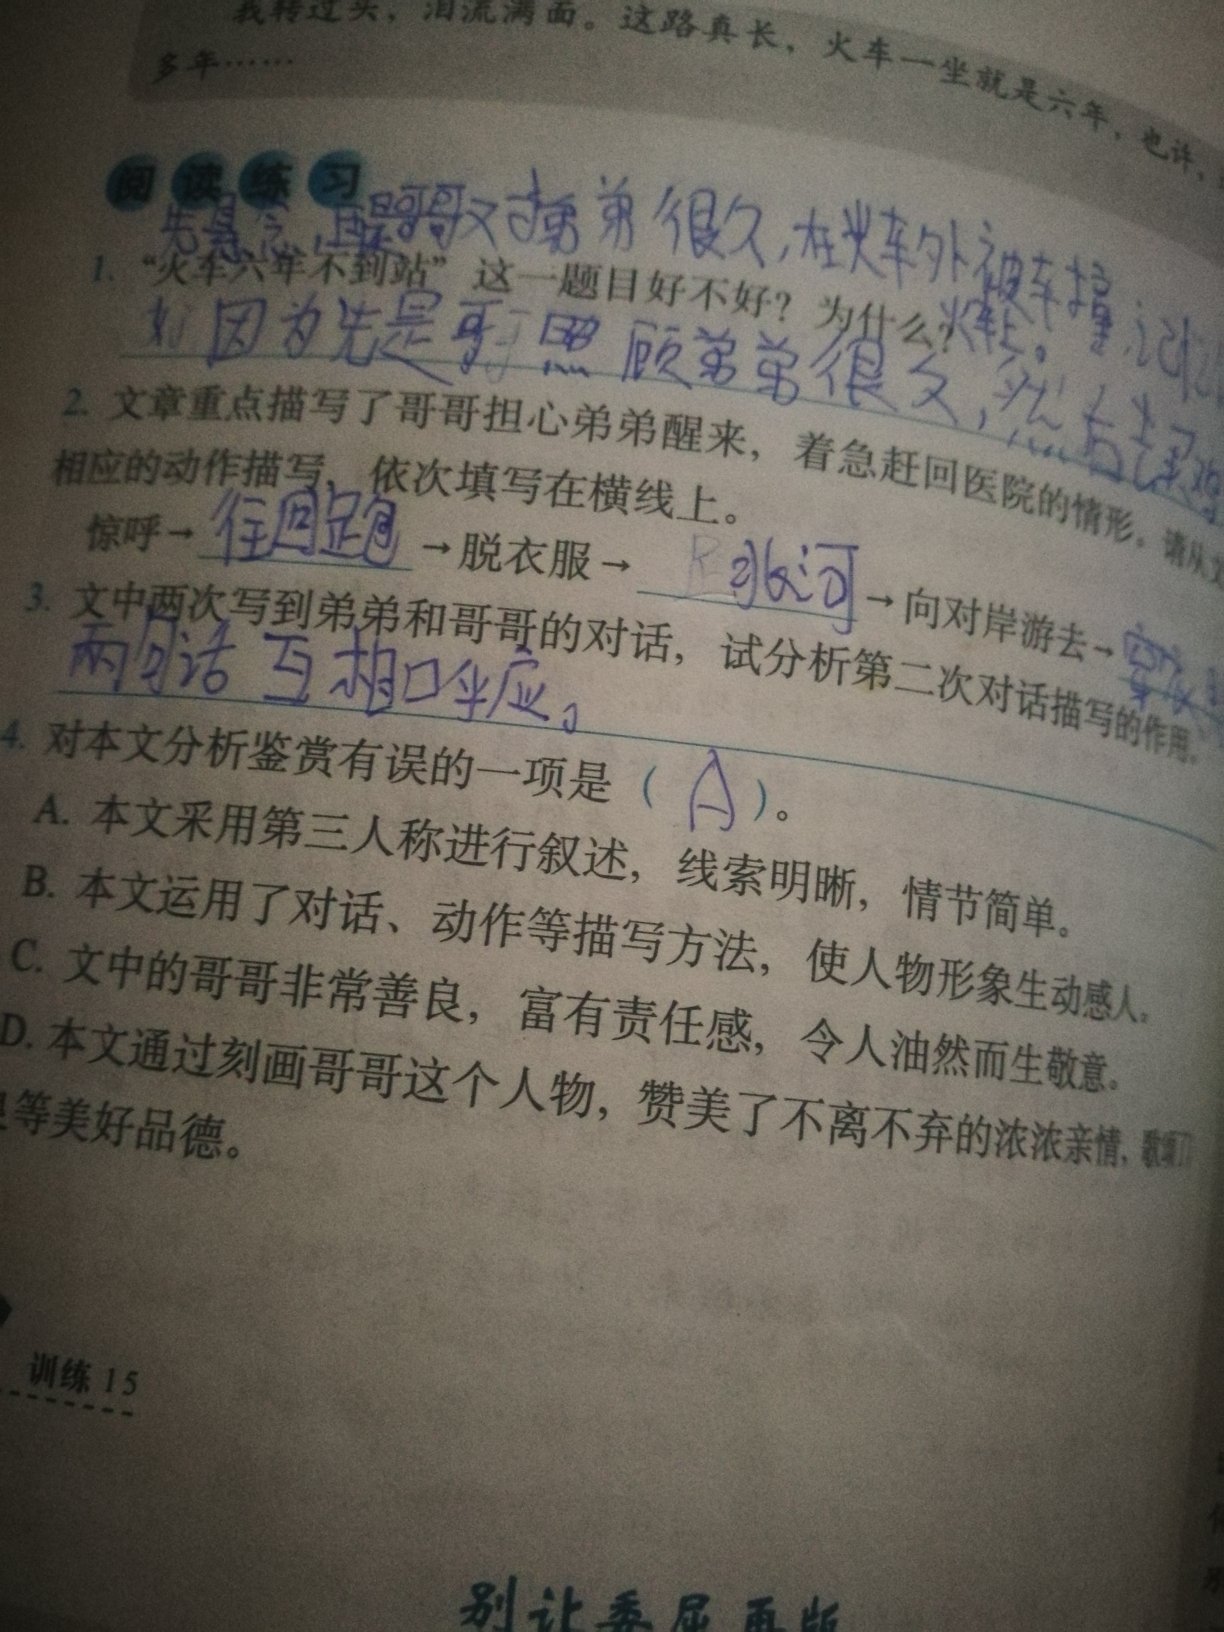 我转过头，泪流满面。这路真长，火车一坐就是六年，也许，
多年……
阅读练习
先悬念，再是哥哥又过弟弟很久，在火车外被车撞，记忆
1. “火车六年不到站”这一题目好不好？为什么？
火车上。
好因为先是哥哥照顾弟弟很久，然后
2. 文章重点描写了哥哥担心弟弟醒来，着急赶回医院的情形。请从文
相应的动作描写，依次填写在横线上。
惊呼→往回跑→脱衣服→跳河→向对岸游去→穿衣
3. 文中两次写到弟弟和哥哥的对话，试分析第二次对话描写的作用。
两句话互相呼应。
4. 对本文分析鉴赏有误的一项是（ A ）。
A. 本文采用第三人称进行叙述，线索明晰，情节简单。
B. 本文运用了对话、动作等描写方法，使人物形象生动感人。
C. 文中的哥哥非常善良，富有责任感，令人油然而生敬意。
D. 本文通过刻画哥哥这个人物，赞美了不离不弃的浓浓亲情，歌颂了
等美好品德。
训练 15
别让委屈再版